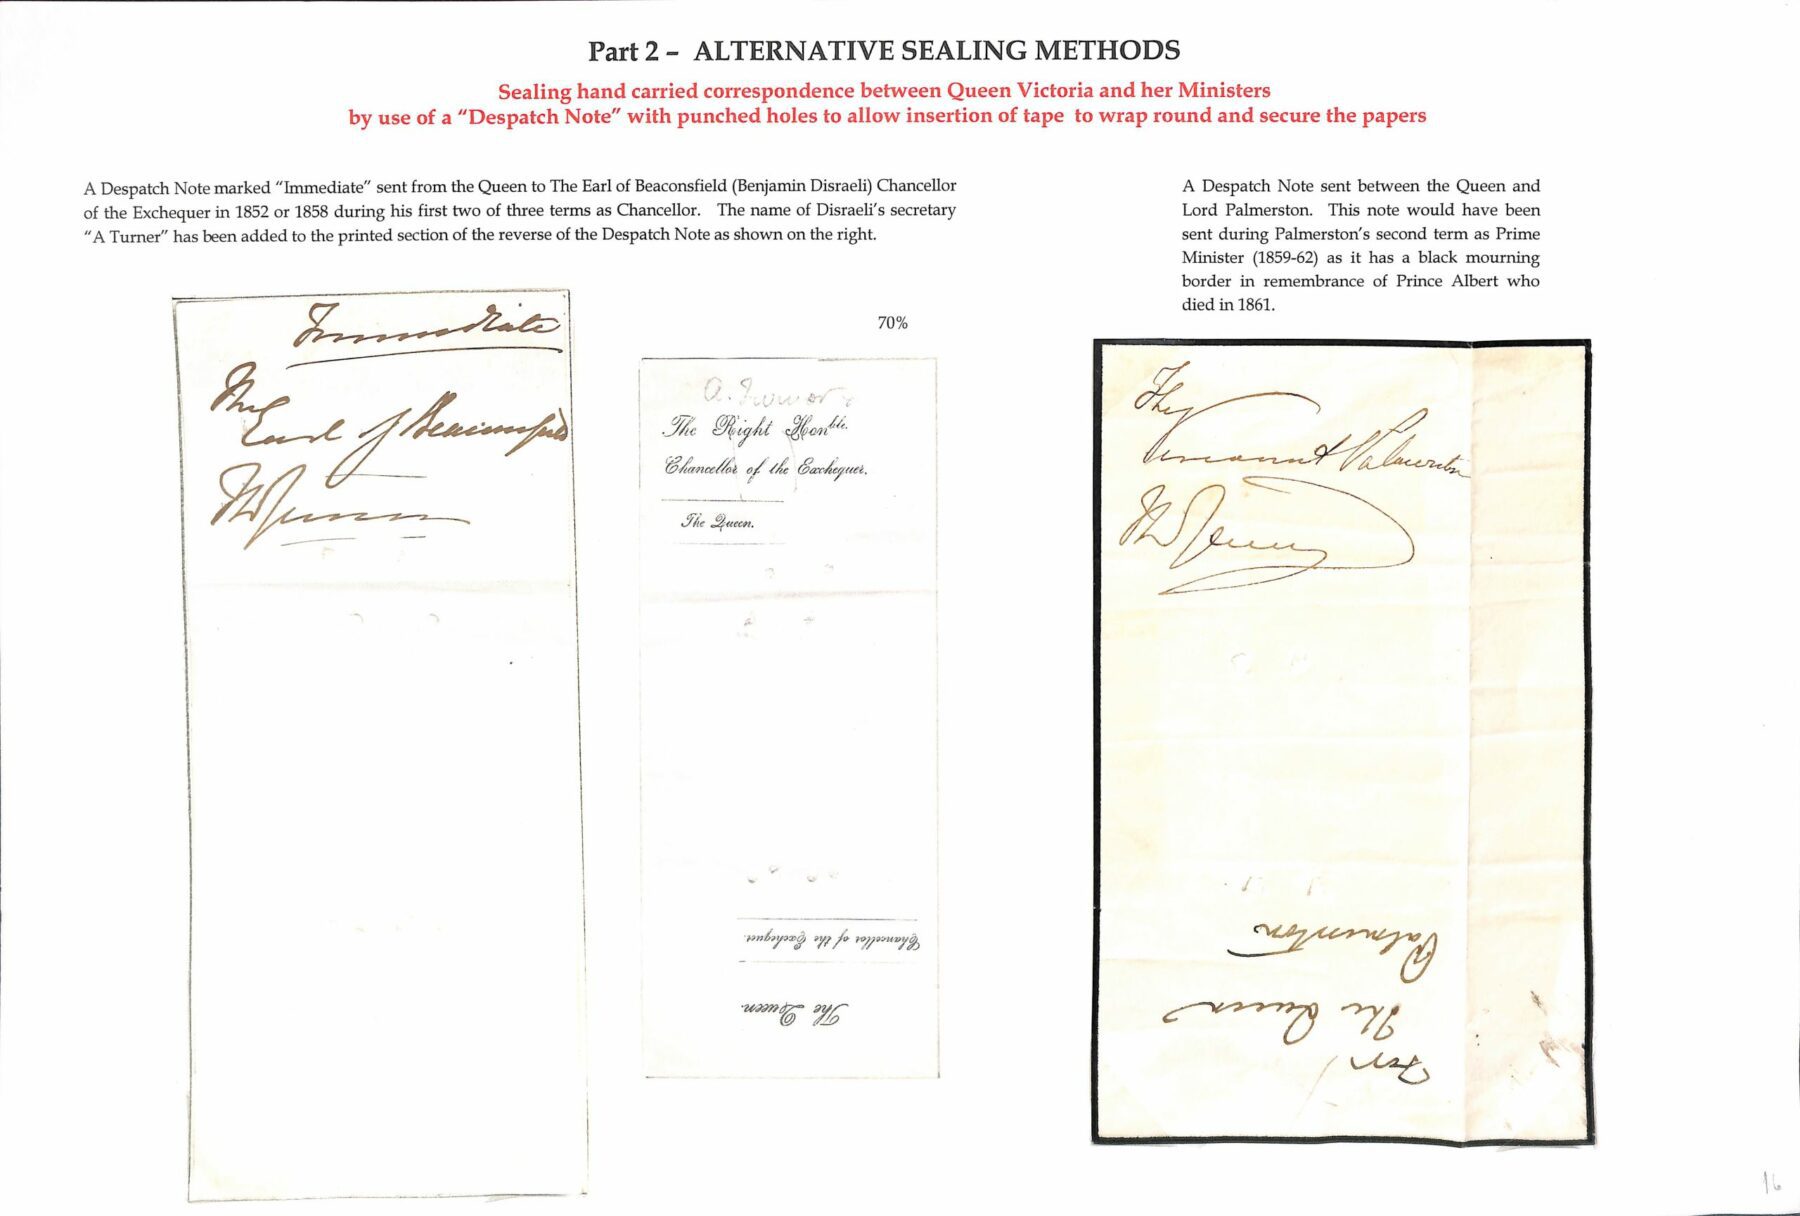 Part 2 – ALTERNATIVE SEALING METHODS
Sealing hand carried correspondence between Queen Victoria and her Ministers
by use of a “Despatch Note” with punched holes to allow insertion of tape to wrap round and secure the papers
A Despatch Note marked “Immediate” sent from the Queen to The Earl of Beaconsfield (Benjamin Disraeli) Chancellor
of the Exchequer in 1852 or 1858 during his first two of three terms as Chancellor. The name of Disraeli’s secretary
“A Turner” has been added to the printed section of the reverse of the Despatch Note as shown on the right.
Immediate
The
Earl of Beaconsfield
70%
A. Turnor
The Right Honble.
Chancellor of the Exchequer.
The Queen.
Chancellor of the Exchequer.
The Queen.
A Despatch Note sent between the Queen and
Lord Palmerston. This note would have been
sent during Palmerston’s second term as Prime
Minister (1859-62) as it has a black mourning
border in remembrance of Prince Albert who
died in 1861.
The
Viscount Palmerston
The Queen
Palmerston
16